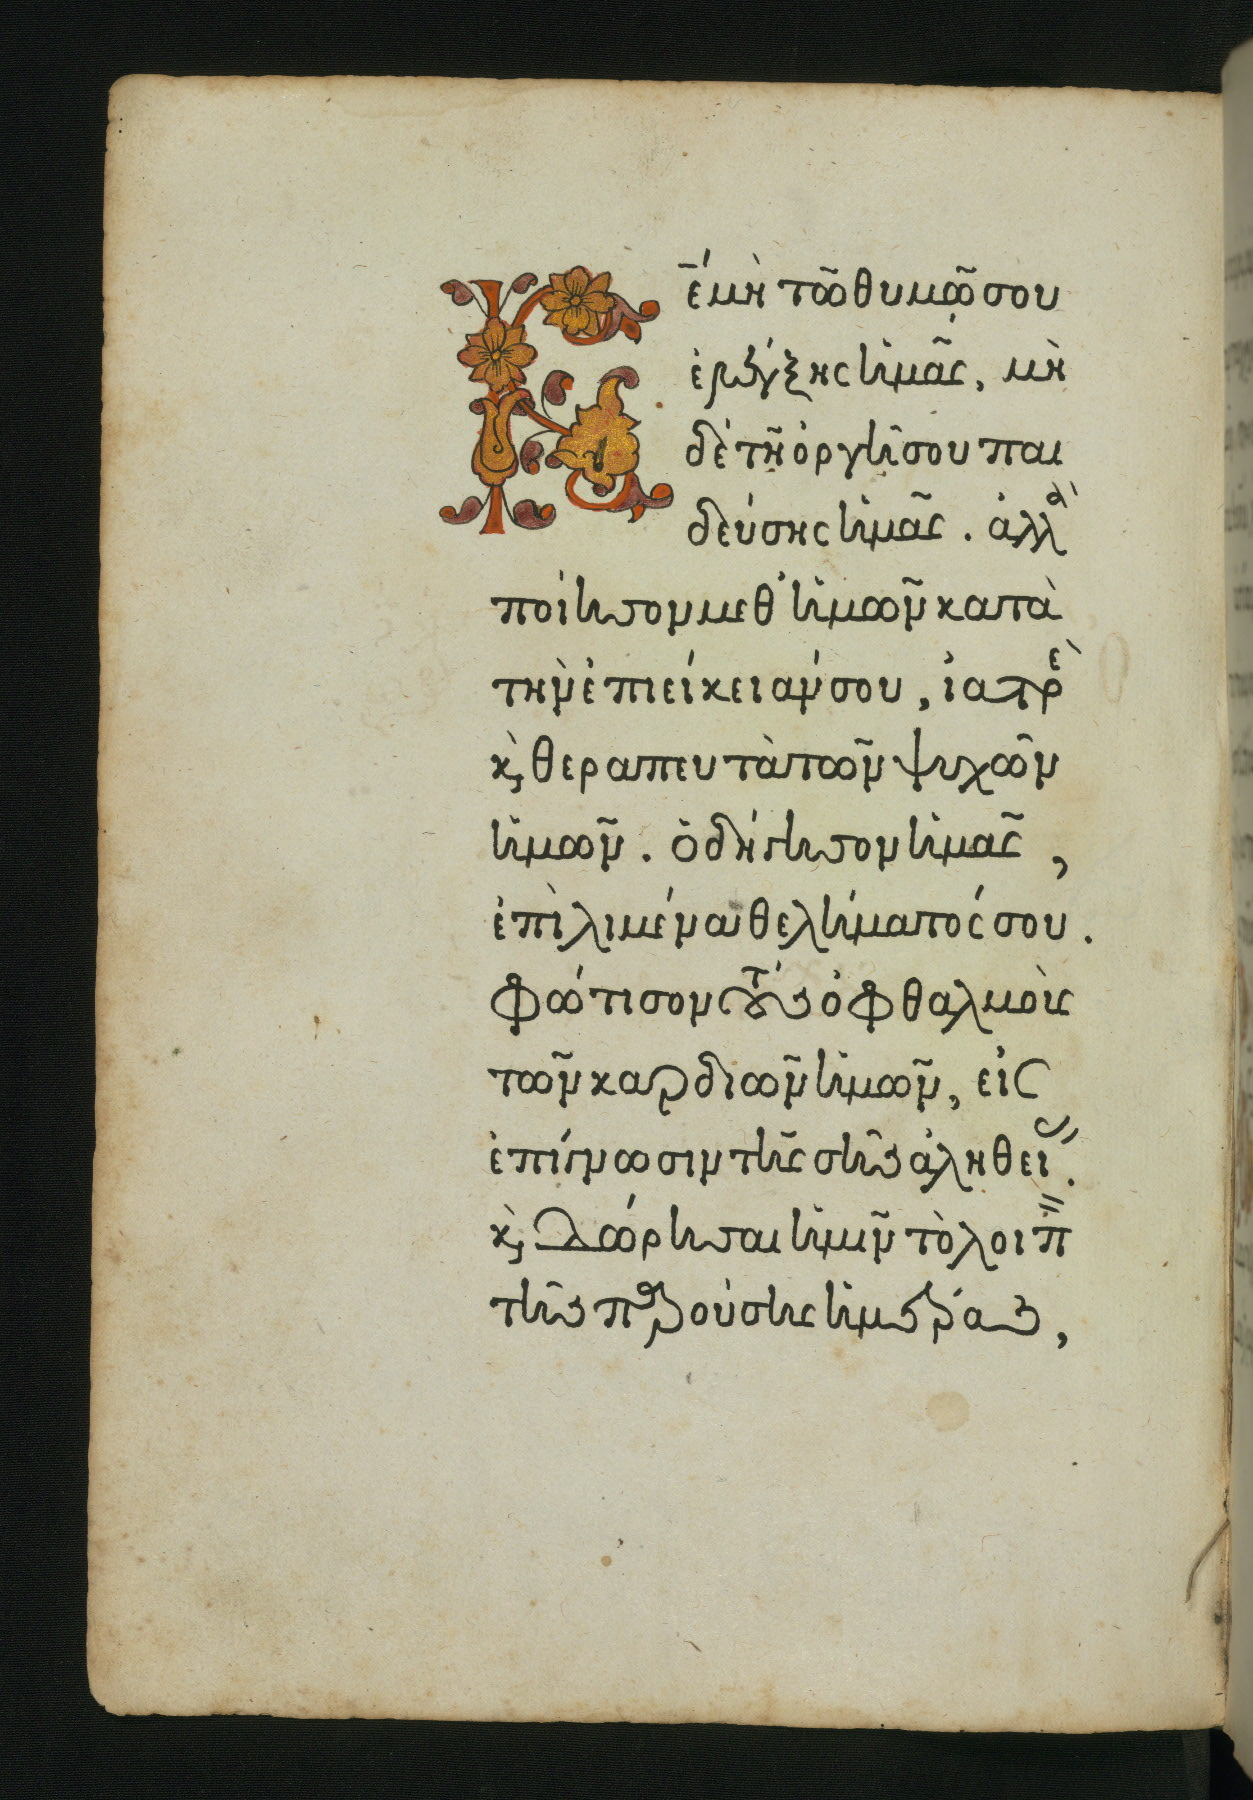 Κ̅έ μὴ τῶ θυμῷ σου
ἐλέγξης ἡμᾶς, μὴ
δὲ τῆ ὀργῆ σου παι
δεύσης ἡμᾶς. ἀλλὰ
ποίησον μεθ' ἡμῶν κατὰ
τὴν ἐπιείκειάν σου, ἰατρὲ
κ̀ θεραπευτὰ τῶν ψυχῶν
ἡμῶν. ὁδήγησον ἡμᾶς,
ἐπὶ λιμένα θελήματός σου.
φώτισον τοὺς ὀφθαλμοὺς
τῶν καρδιῶν ἡμῶν, εἰς
ἐπίγνωσιν τῆς σῆς ἀληθείας.
κ̀ δώρησαι ἡμῖν τὸ λοιπὸν
τῆς παρούσης ἡμέρας,